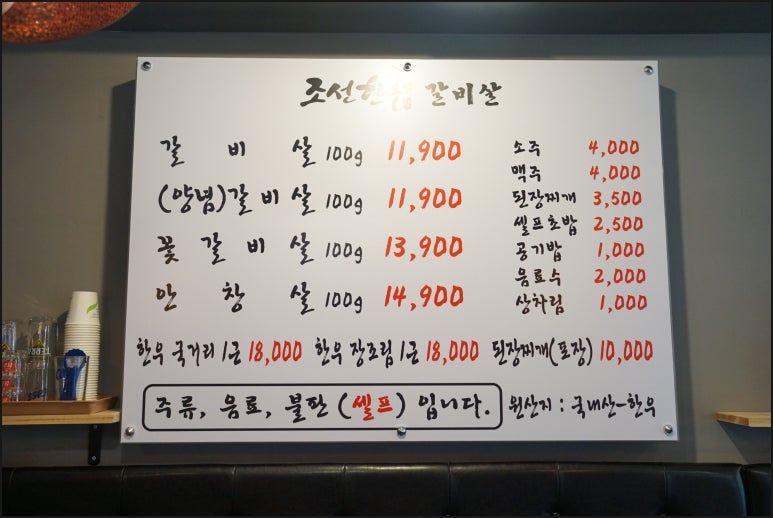 조선한우 갈비살
갈비살 100g 11,900
(양념)갈비살 100g 11,900
꽃갈비살 100g 13,900
안창살 100g 14,900
소주 4,000
맥주 4,000
된장찌개 3,500
셀프초밥 2,500
공기밥 1,000
음료수 2,000
상차림 1,000
한우 국거리 1근 18,000 한우 장조림 1근 18,000 된장찌개(포장) 10,000
주류, 음료, 불판 (셀프) 입니다.
원산지 : 국내산-한우